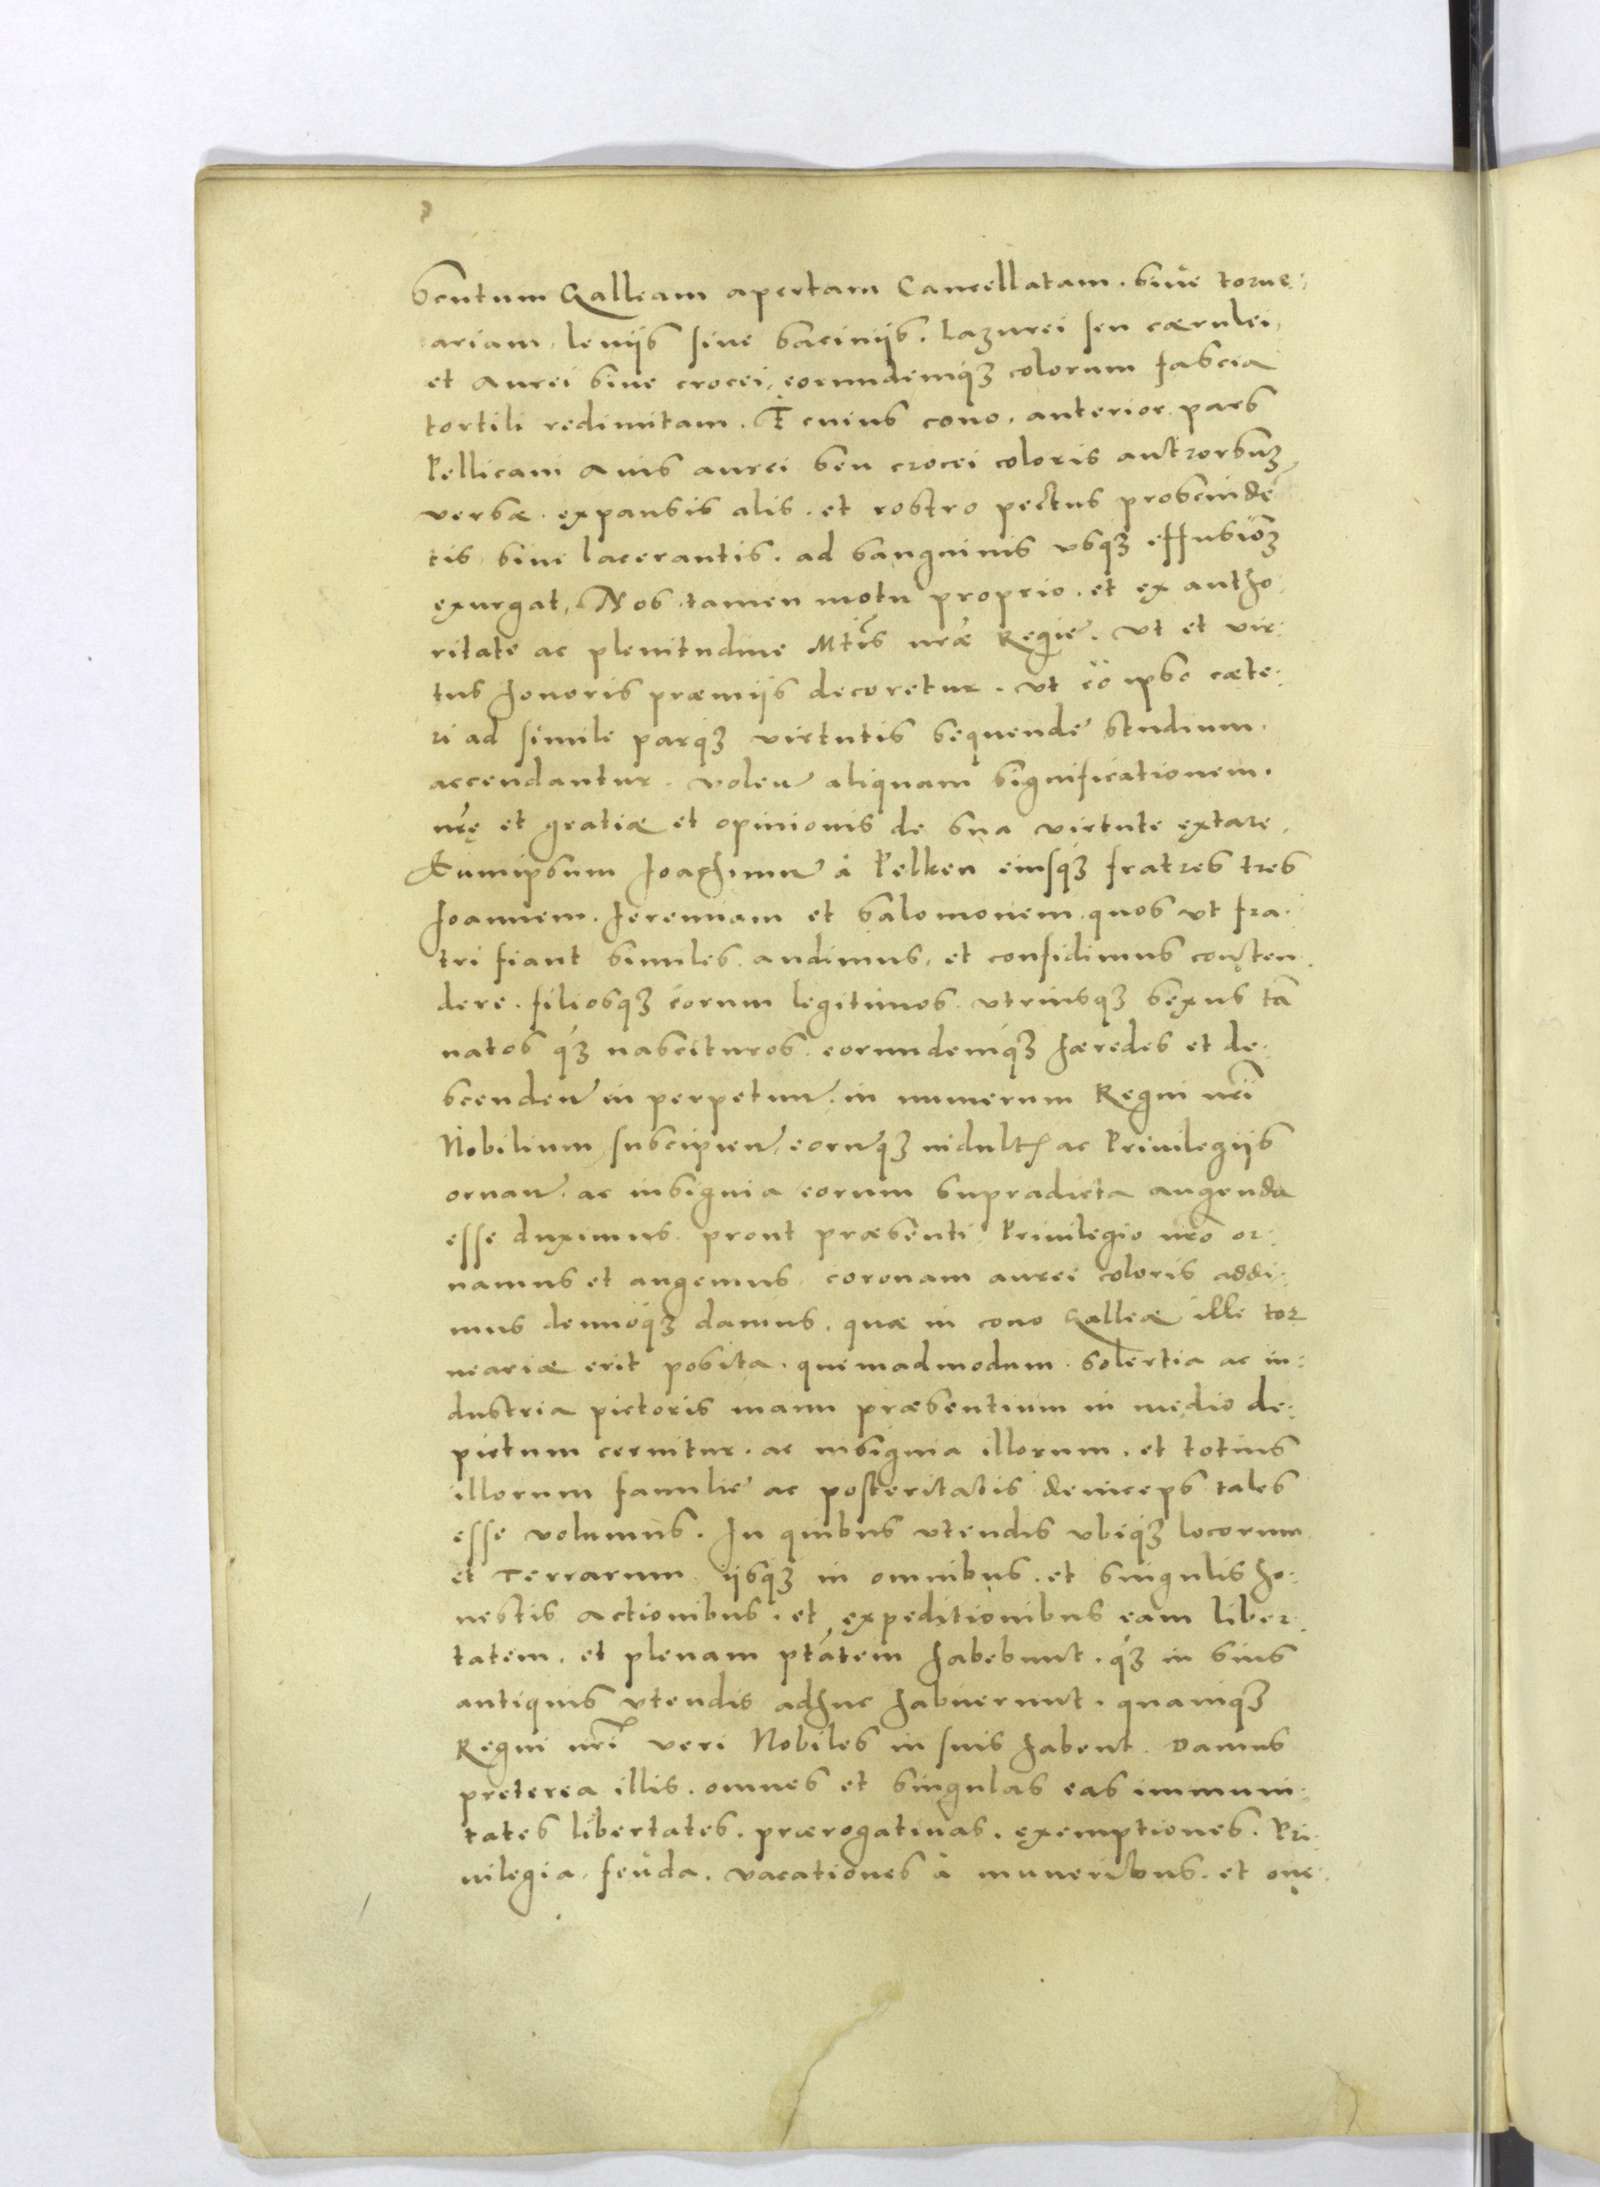 scutum Galleam apertam Cancellatam. siue torne:
ariam, leniis siue saciniis. Lazurei seu cærulei,
et Aurei siue crocei, eorundemq́ꝫ colorum fascia
tortili redimitam. I cuius cono. anterior pars
Pellicani Auis aurei seu crocei coloris antrorsuꝫ
versæ. expansis alis. et rostro pectus proscindē
tis siue lacerantis. ad sanguinis vsqꝫ effusioꝫ
exurgat, Nos tamen motu proprio. et ex autho
ritate ac plenitudine Mtis nræ Regie. vt et vir:
tus honoris præmijs decoretur. vt eo ipso cæte:
ri ad simile parqꝫ virtutis sequende studium.
accendantur. volen aliquam significationem.
nrę et gratiæ et opinionis de sua virtute extare,
Eumipsum Joachimū à Pelken eiusqꝫ fratres tres
Joannem. Jeremiam et Salomonem. quos vt fra.
tri fiant similes. audimus, et confidimus conten
dere. filiosqꝫ eorum legitimos. vtriusqꝫ sexus tā
natos q́ꝫ nascituros. eorundemq́ꝫ hæredes et de:
scenden in perpetuū. in numerum Regni nri
Nobilium suscipien, eorūqꝫ indult ac Priuilegiis
ornan. ac insignia eorum supradicta augenda
esse duximus. prout præsenti Priuilegio nro or:
namus et augemus. coronam aurei coloris addi:
mus denuoq́ꝫ damus. quæ in cono Galleæ ille tor
neariæ erit posita. quemadmodum. solertia ac in:
dustria pictoris manu præsentium in medio de:
pictum cernitur. ac insignia illorum. et totius
illorum familie ac posteritatis deinceps tales
esse volumus. In quibus vtendis vbiq́ꝫ locorum
et Terrarum iisqꝫ in omnibus. et singulis ho:
nestis actionibus. et expeditionibus eam liber.
tatem. et plenam ptátem habebunt. q́ꝫ in suis
antiquis vtendis adhuc habuerunt. quamqꝫ
Regni nri veri Nobiles in suis habent. Damus
preterea illis. omnes et singulas eas immuni:
tates libertates. prærogatiuas. exemptiones. Pri.
uilegia, feuda. vacationes à muneribus. et one: